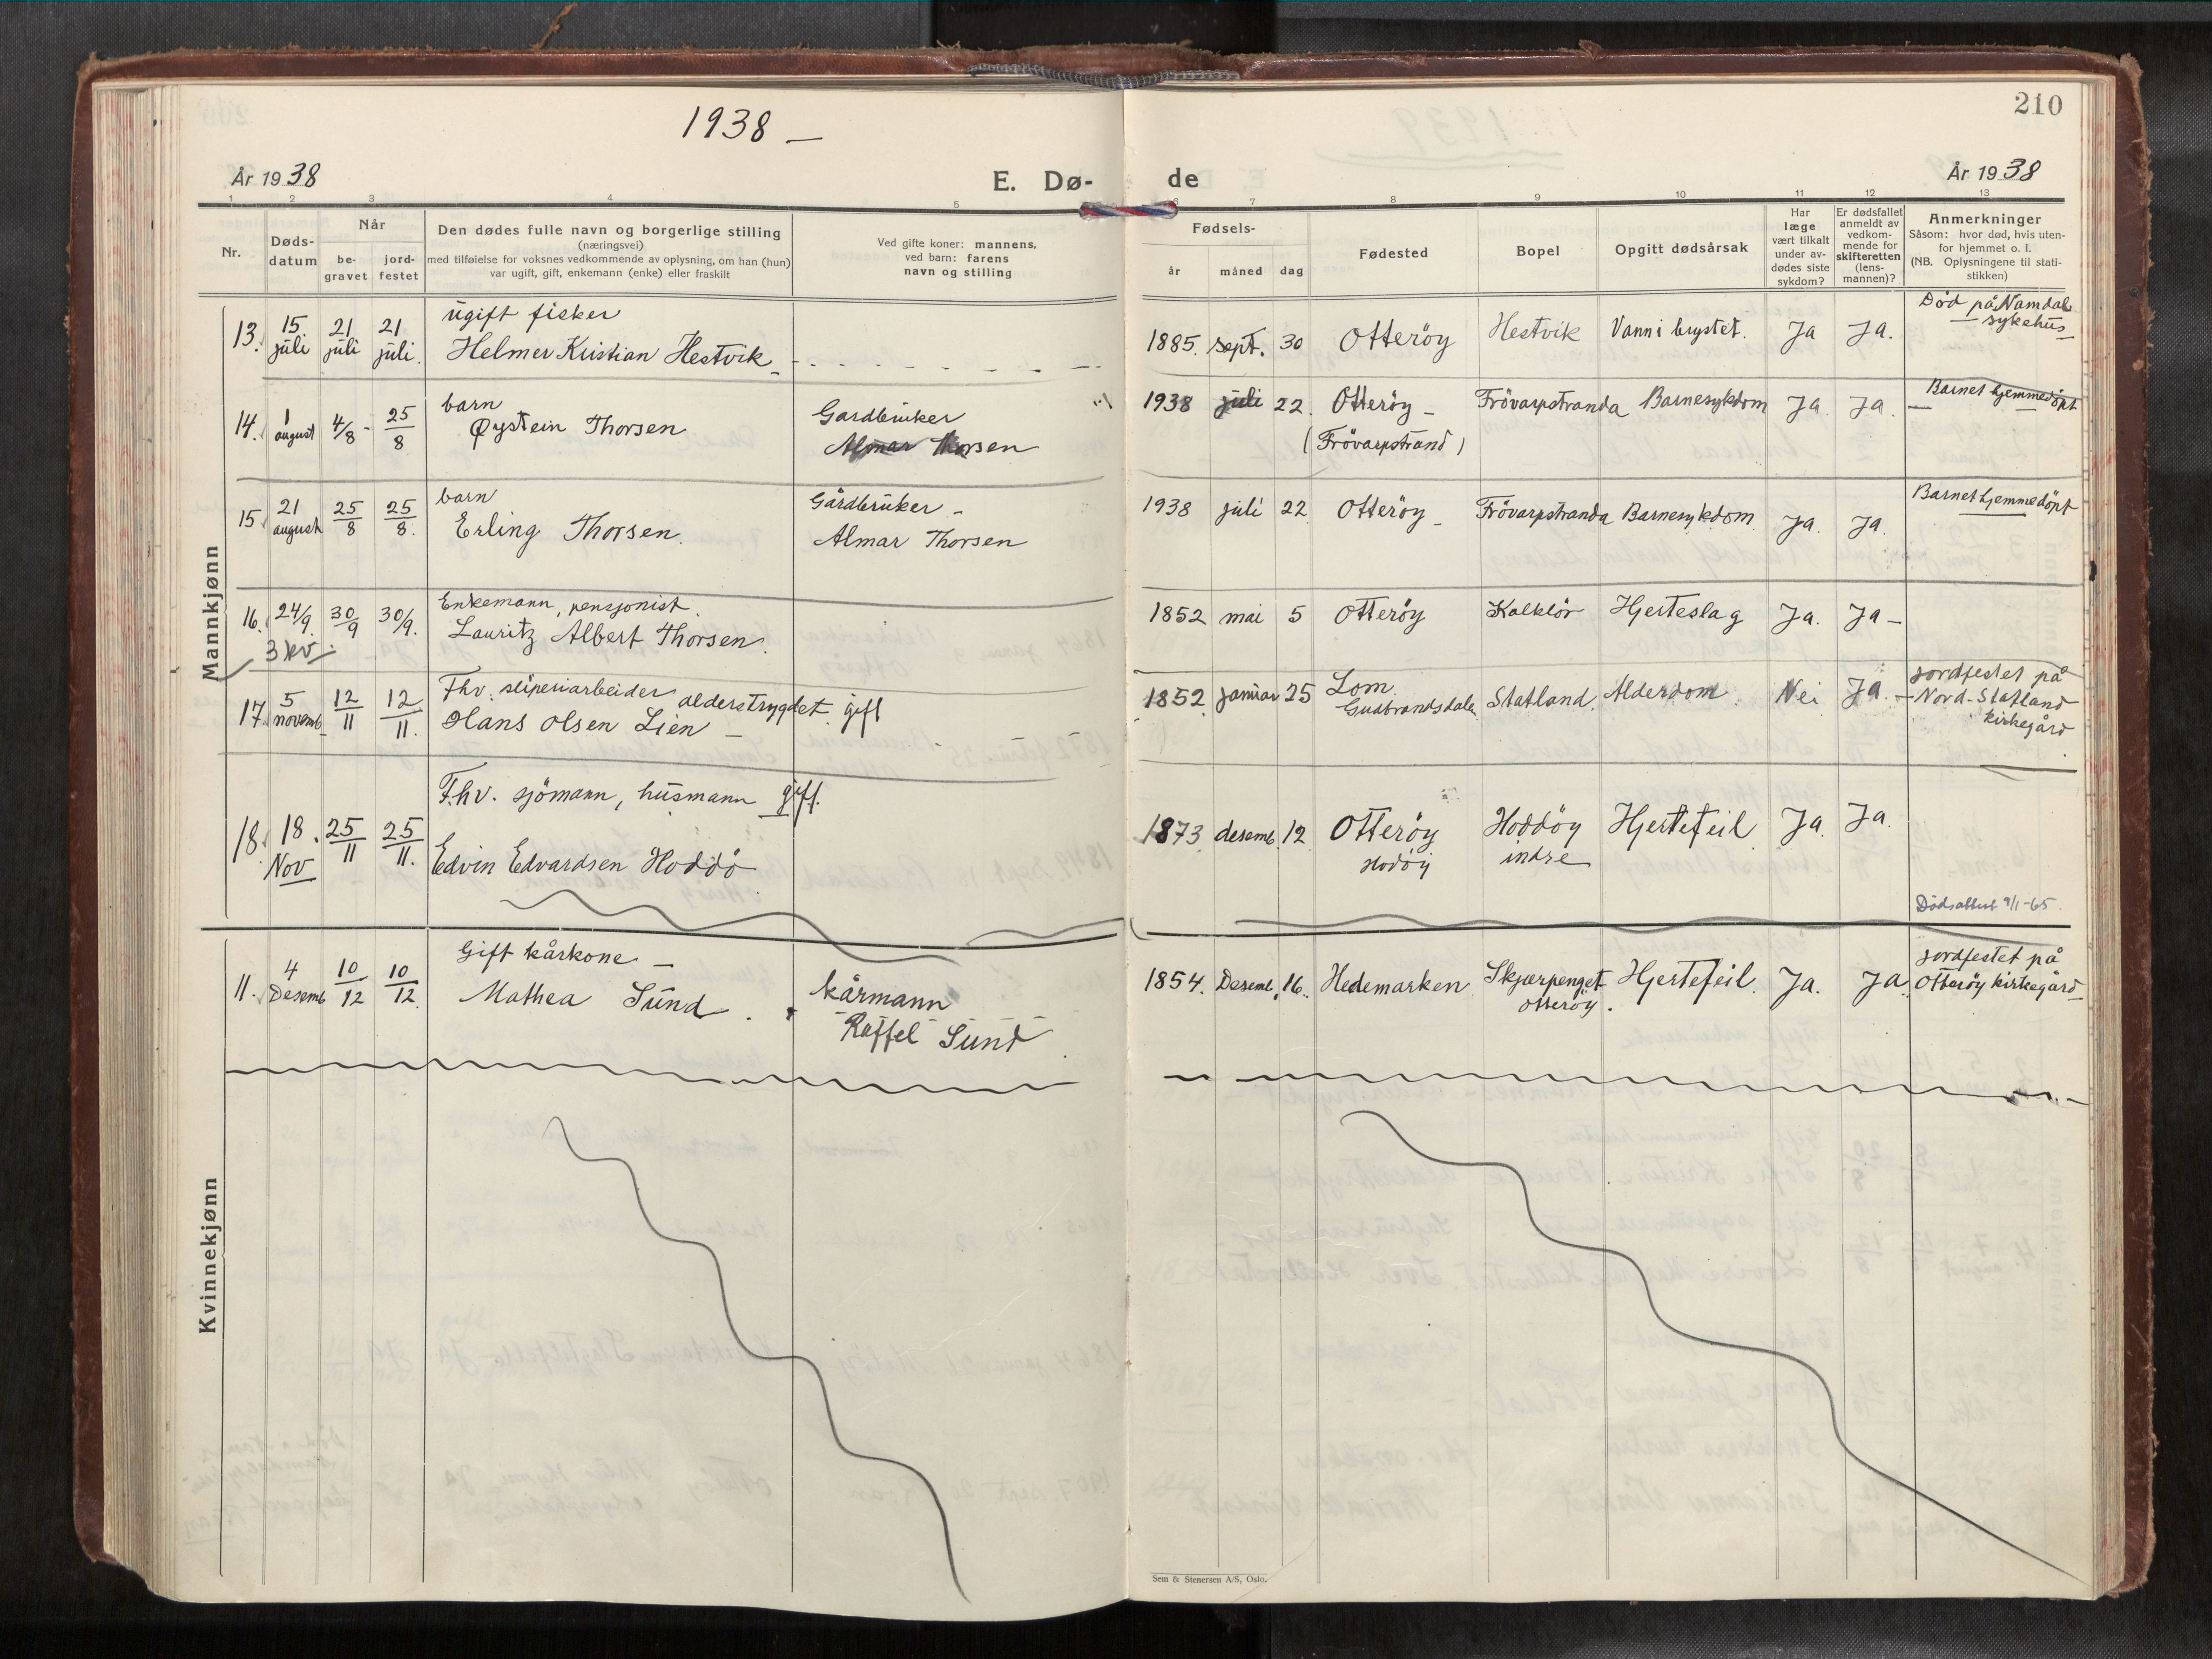 1938 –
210
År 1938
E. Dø-
de
År 1938
1 2 3 4 5
6 7 8 9 10 11 12 13
Nr.
Døds-
datum
Når
be-
gravet
jord-
festet
Den dødes fulle navn og borgerlige stilling
(næringsvei)
med tilføielse for voksnes vedkommende av oplysning, om han (hun)
var ugift, gift, enkemann (enke) eller fraskilt
Ved gifte koner: mannens,
ved barn: farens
navn og stilling
Fødsels-
år måned dag
Fødested
Bopel
Opgitt dødsårsak
Har
læge
vært tilkalt
under av-
dødes siste
sykdom?
Er dødsfallet
anmeldt av
vedkom-
mende for
skifteretten
(lens-
mannen)?
Anmerkninger
Såsom: hvor død, hvis uten-
for hjemmet o. l.
(NB. Oplysningene til stati-
stikken)
Mannkjønn
13. 15 juli 21 juli 21 juli.
ugift fisker
Helmer Kristian Hestvik
1885. sept. 30 Otterøy Hestvik Vann i brystet. Ja Ja.
Død på Namdal
sykehus
14. 1 august 4/8 - 25/8
barn
Øystein Thorsen
Gardbruker
Almar Thorsen
1938 juli 22. Otterøy –
(Frövarpstrand)
Frövarpstranda Barnesykdom Ja Ja.
Barnet hjemmedöpt
15. 21 august 25/8 25/8.
barn
Erling Thorsen.
Gårdbruker –
Almar Thorsen
1938 juli 22 Otterøy – Frövarpstranda Barnesykdom Ja. Ja.
Barnet hjemmedöpt
16. 24/9. 30/9 30/9.
3 kv.
Enkemann, pensjonist.
Lauritz Albert Thorsen.
1852 mai 5 Otterøy Kalklör Hjerteslag Ja. Ja –
17. 5 novemb 12/11 12/11.
Fhv. sliperiarbeider alderstrygdet. gift
Hans Olsen Lien –
1852 januar 25 Lom
Gudbrandsdalen
Statland. Alderdom. Nei Ja. –
jordfestet på
Nord-Statland
kirkegård
18. 18. Nov 25/11 25/11.
F.hv. sjömann, husmann gift.
Edvin Edvardsen Hoddö
1873 desemb. 12. Otterøy
Hodöy
Hoddöy
indre
Hjertefeil. Ja. Ja.
Dödsattest 9/1-65.
Kvinnekjønn
11. 4 Desemb 10/12 10/12.
Gift kårkone –
Mathea Sund.
kårmann
Raffel Sund
1854. Desemb. 16. Hedemarken Skjærpenget
Otterøy.
Hjertefeil. Ja. Ja.
jordfestet på
Otterøy kirkegård
Sem & Stenersen A/S, Oslo.